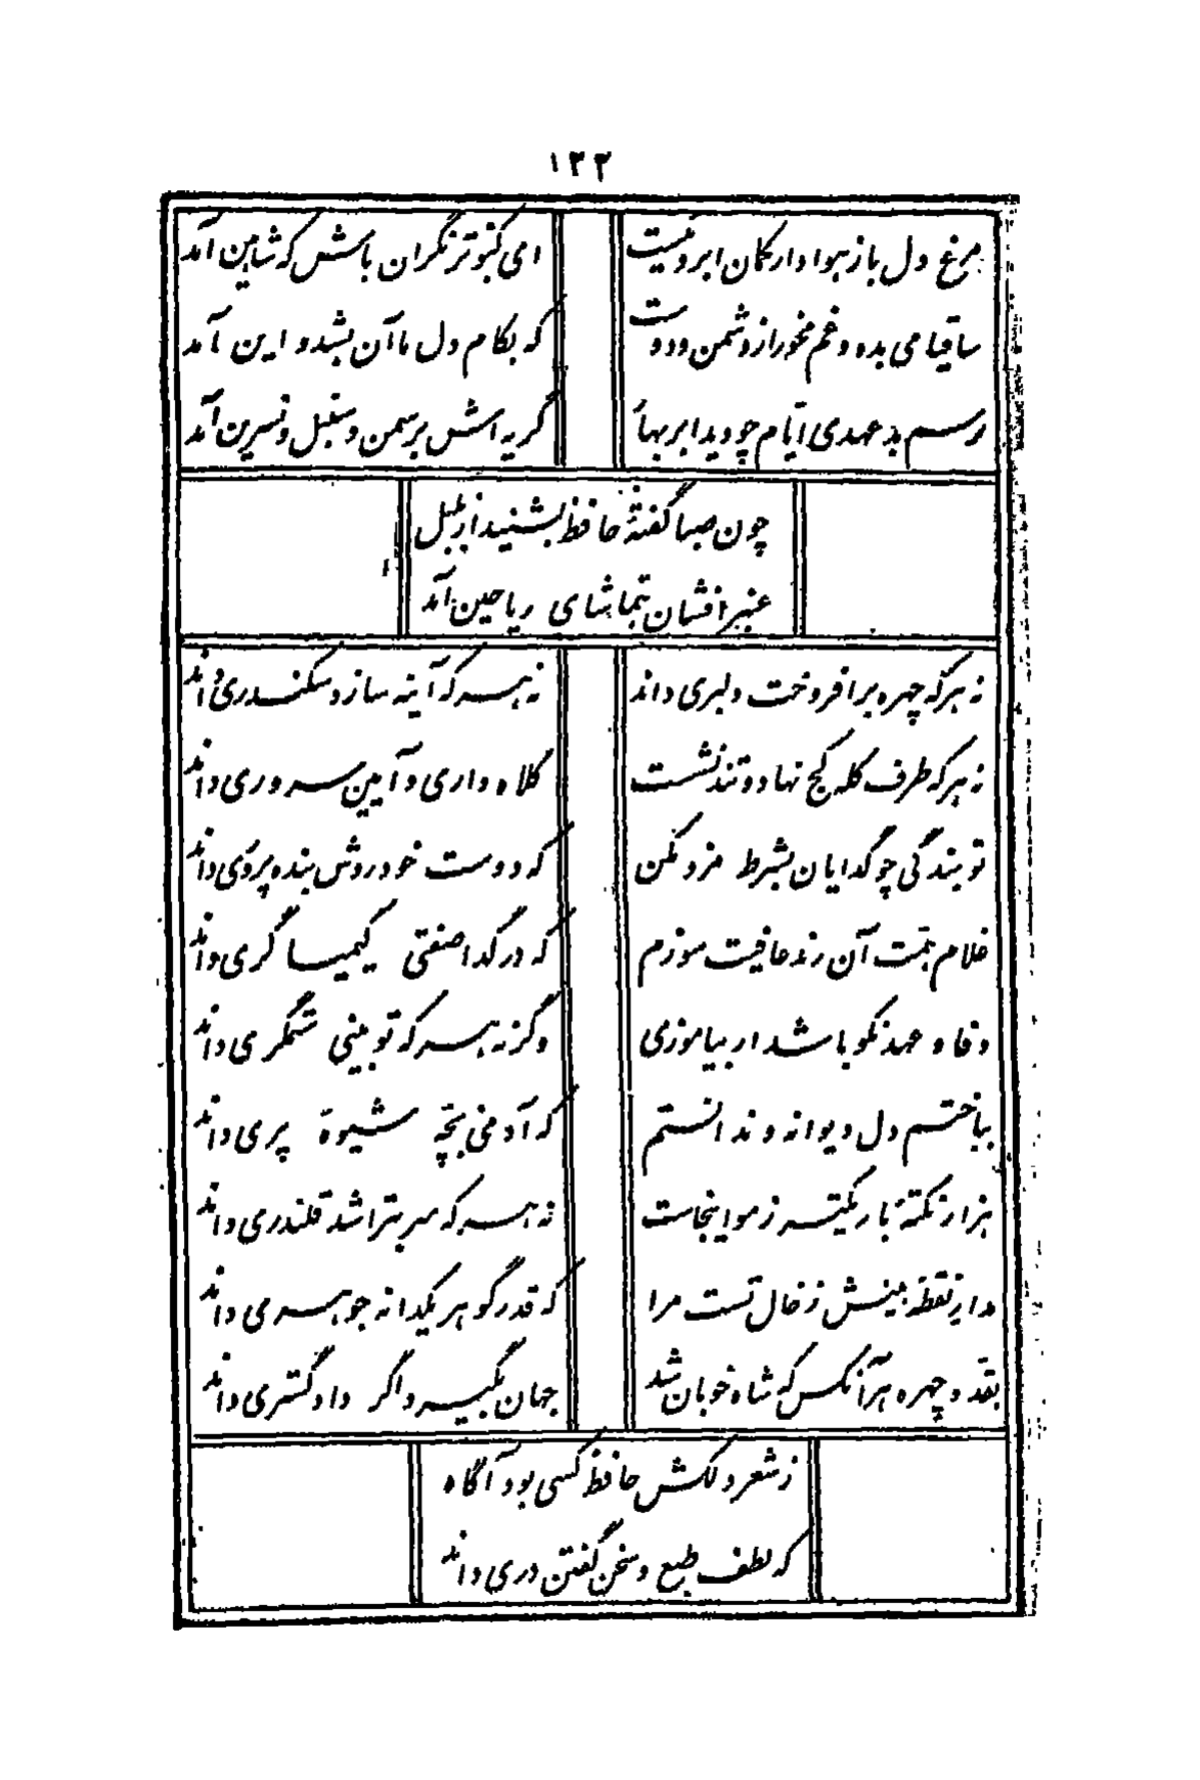 ۱۳۲
مرغ دل باز هوادار کمان ابروئیست
ای کبوتر نگران باش که شاهین آمد
ساقیا می بده و غم مخور از دشمن و دوست
که بکام دل ما آن بشد و این آمد
رسم بد عهدی ایام چو دید ابر بهار
گریه اش بر سمن و سنبل و نسرین آمد
چون صبا گفتهٔ حافظ بشنید از بلبل
عنبر افشان بتماشای ریاحین آمد
نه هر که چهره برافروخت دلبری داند
نه هر که آینه سازد سکندری داند
نه هر که طرف کله کج نهاد و تند نشست
کلاه داری و آیین سروری داند
تو بندگی چو گدایان بشرط مزد مکن
که دوست خود روش بنده پروری داند
غلام همت آن رند عافیت سوزم
که در گدا صفتی کیمیا گری داند
وفا و عهد نکو باشد ار بیاموزی
وگرنه هر که تو بینی ستمگری داند
بباختم دل دیوانه و ندانستم
که آدمی بچه شیوهٔ پری داند
هزار نکتهٔ باریکتر ز مو اینجاست
نه هر که سر بتراشد قلندری داند
مدار نقطه بینش ز خال تست مرا
که قدر گوهر یکدانه جوهری داند
بقد و چهره هر آنکس که شاه خوبان شد
جهان بگیرد اگر دادگستری داند
ز شعر دلکش حافظ کسی بود آگاه
که لطف طبع و سخن گفتن دری داند